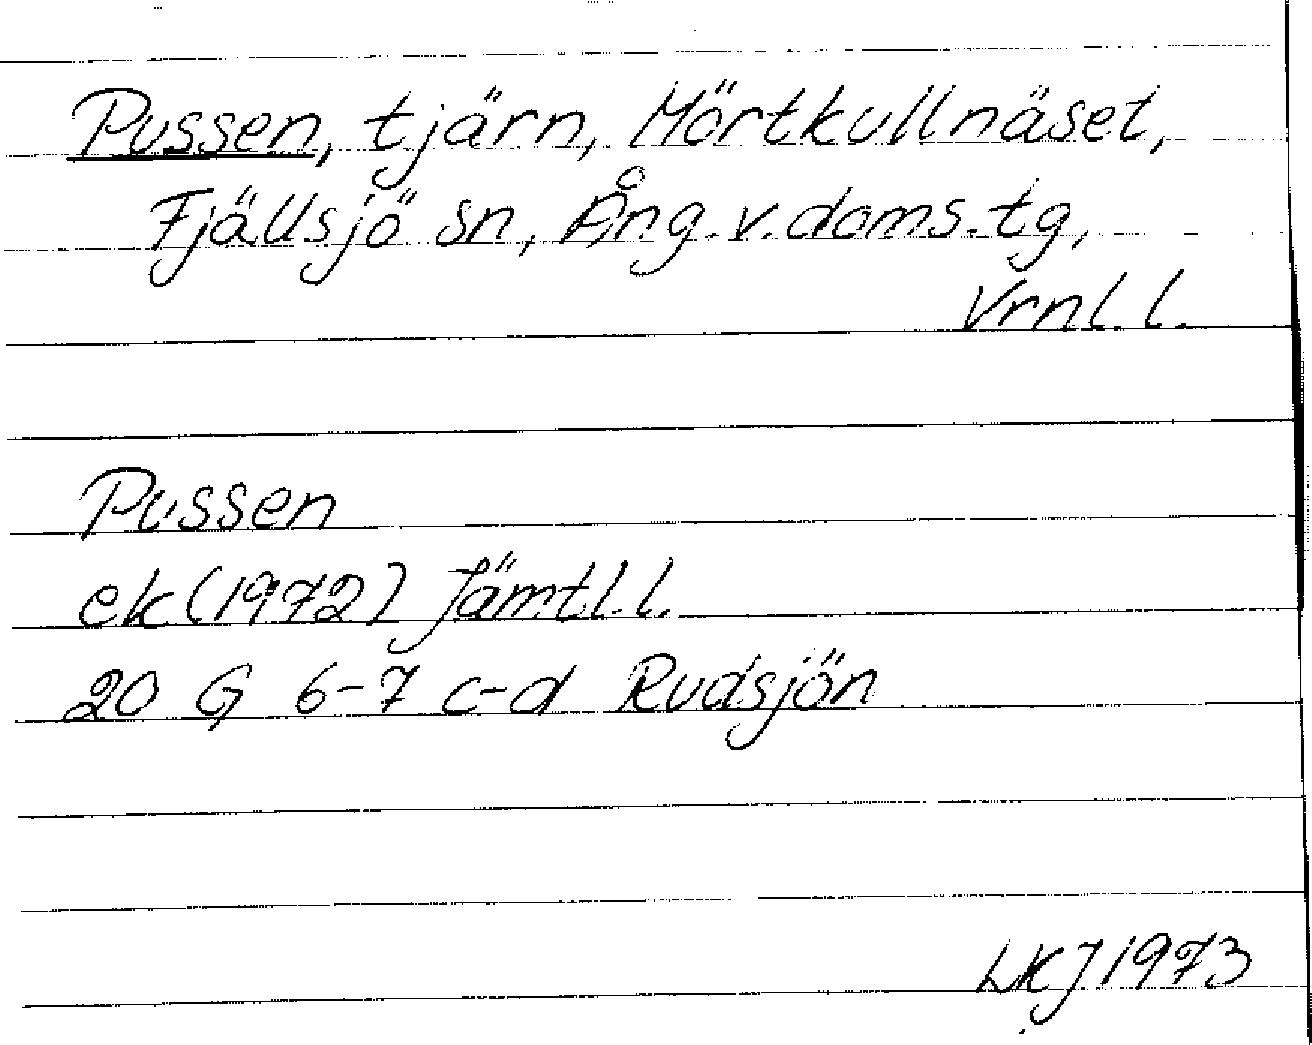 Pussen, tjärn, Mörtkullnäset,
Fjällsjö sn, Ång. v. doms. tg,
Vrnl. l.
Pussen
ek (1972) Jämtl. l.
20 G 6-7 c-d Rudsjön
LKJ 1973